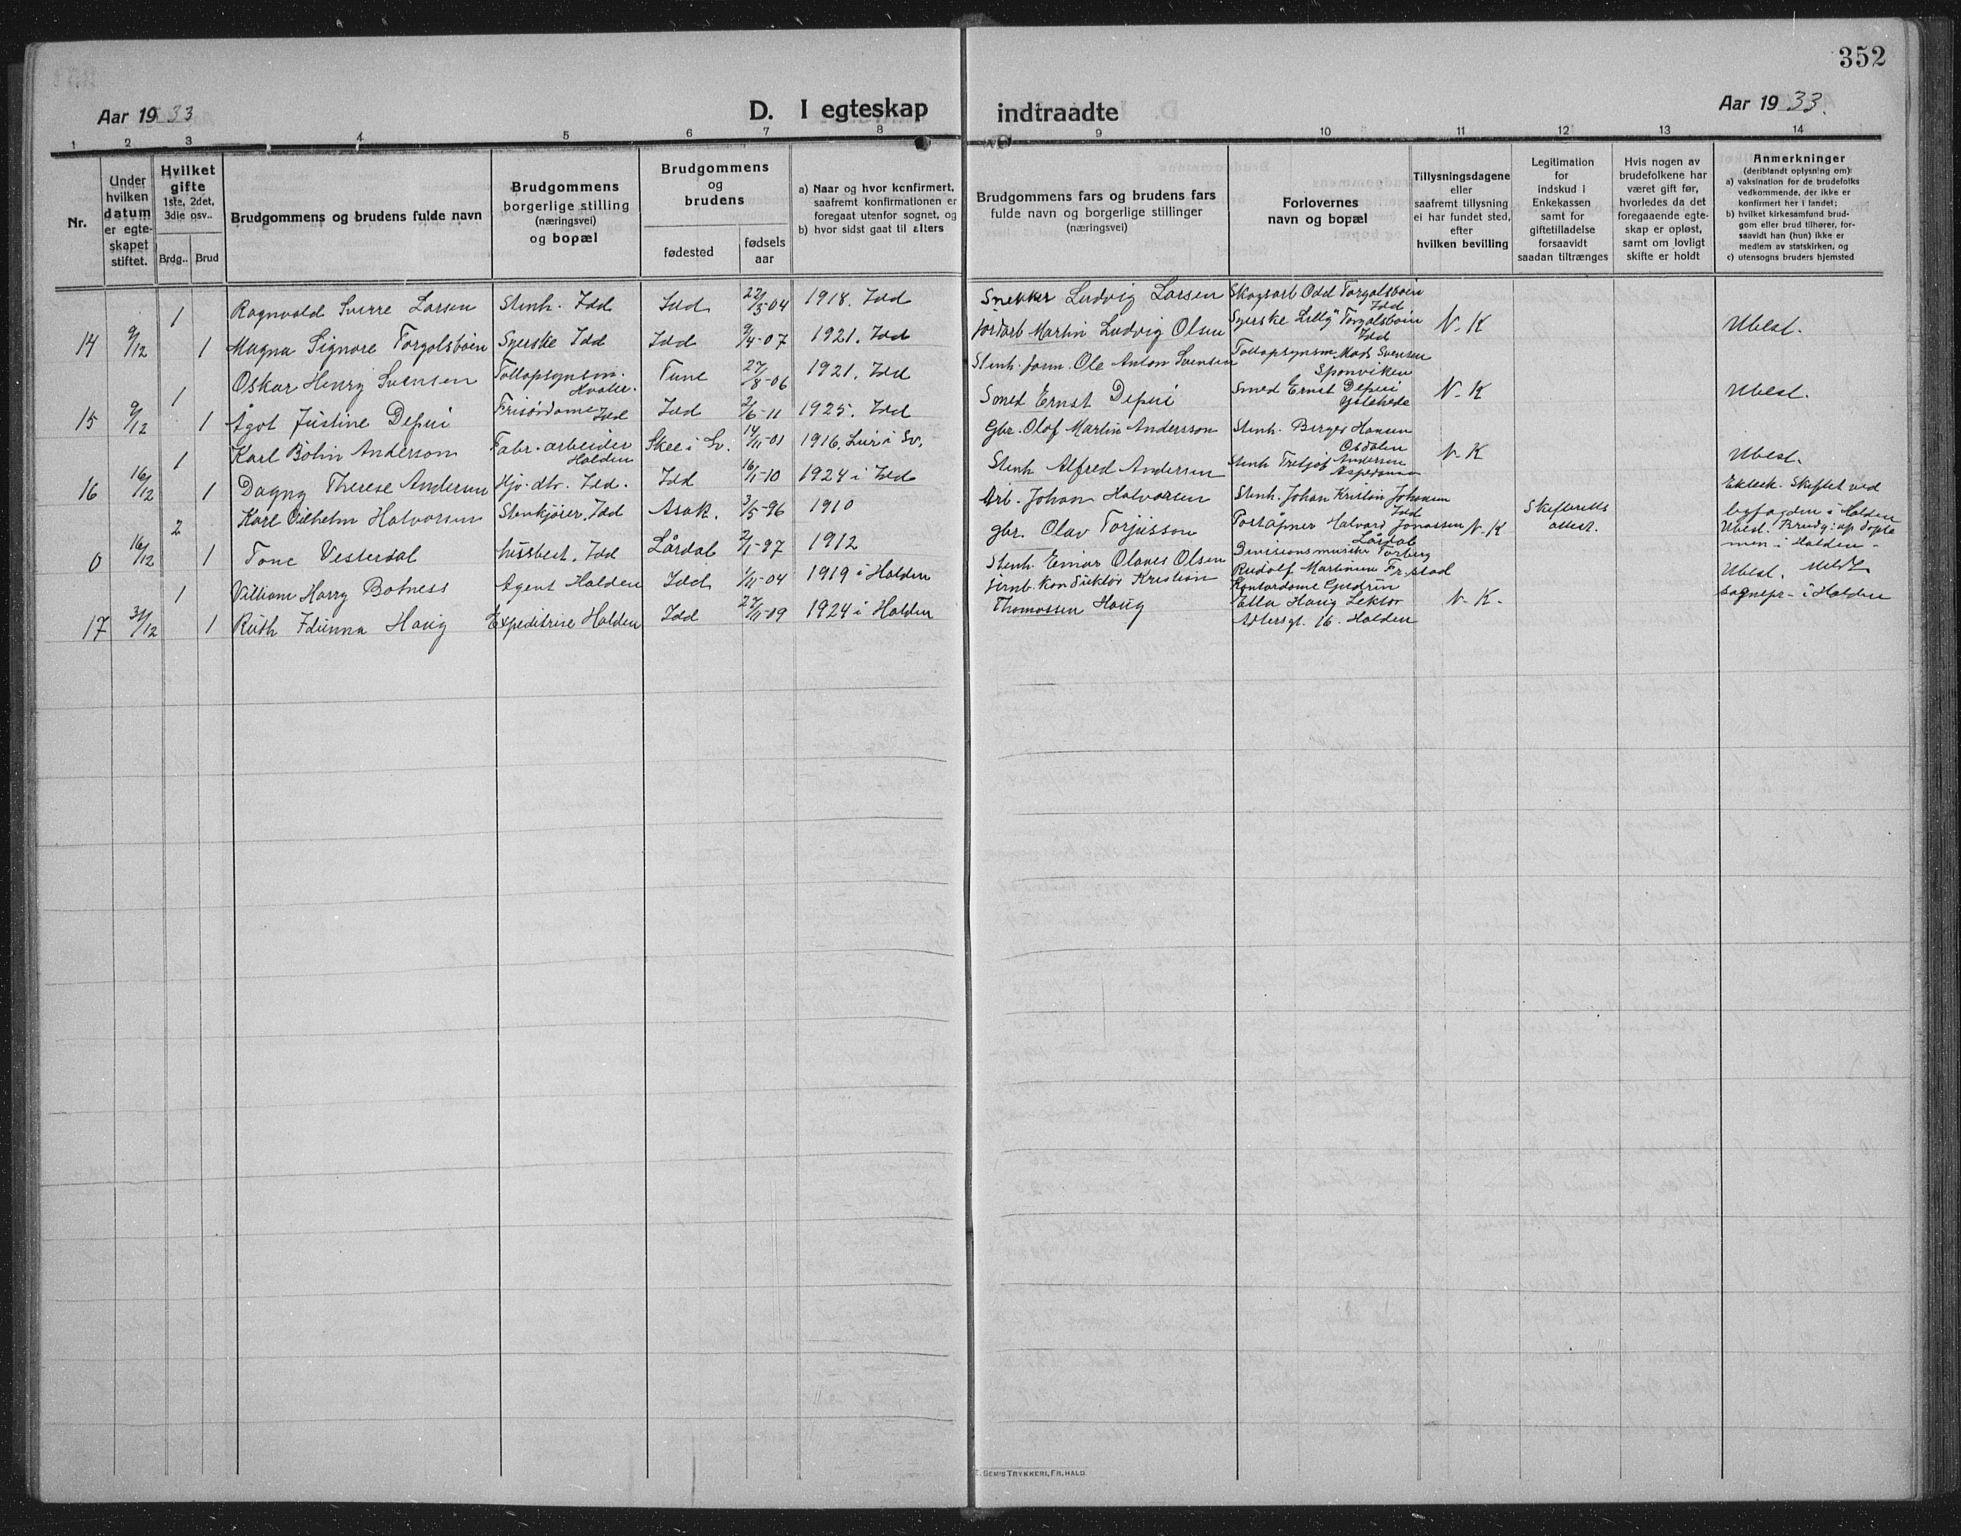 352
Aar 1933
D. I egteskap
indtraadte
Aar 1933.
1 2 3 4 5 6 7 8 9 10 11 12 13 14
Nr.
Under hvilken datum er egteskapet stiftet.
Hvilket gifte 1ste, 2det, 3die osv..
Brdg.. Brud
Brudgommens og brudens fulde navn
Brudgommens borgerlige stilling (næringsvei) og bopæl
Brudgommens og brudens
fødested
fødsels aar
a) Naar og hvor konfirmert, saafremt konfirmationen er foregaat utenfor sognet, og
b) hvor sidst gaat til alters
Brudgommens fars og brudens fars fulde navn og borgerlige stillinger (næringsvei)
Forlovernes navn og bopæl
Tillysningsdagene eller saafremt tillysning ei har fundet sted, efter hvilken bevilling
Legitimation for indskud i Enkekassen samt for giftetilladelse forsaavidt saadan tiltrænges
Hvis nogen av brudefolkene har været gift før, hvorledes da det foregaaende egteskap er opløst, samt om lovligt skifte er holdt
Anmerkninger (deriblandt oplysning om):
a) vaksination for de brudefolks vedkommende, der ikke er konfirmert her i landet;
b) hvilket kirkesamfund brudgom eller brud tilhører, forsaavidt han (hun) ikke er medlem av statskirken, og
c) utensogns bruders hjemsted
1 Ragnvald Sverre Larsen Stenh. Idd Idd 22/5-04 1918. Idd Snekker Ludvig Larsen Skogsarb Odd Torgalsbøen Idd
14 9/12 1 Magna Signore Torgalsbøen Syerske Idd Idd 9/4-07 1921. Idd Jordarb Martin Ludvig Olsen Syerske Lilly Torgalsbøen Idd N.K Ubest.
1 Oskar Henry Svensen Tollopsynsm. Hvaler. Tune 27/8-06 1921. Idd Stenh. form. Ole Anton Svensen Tollopsynsm Mads Svensen Sponviken
15 9/12 1 Ågot Justine Depui Frisørdame Idd Idd 2/6-11 1925. Idd Smed Ernst Depui Smed Ernst Depui N.K Ubest.
1 Karl Bolin Anderson Fabr. arbeider Halden Skee i Sv. 14/11-01 1916. Lur i Sv. Gbr. Olof Martin Andersson Stenh. Birger Hansen
16 16/12 1 Dagny Therese Andersen Hjv. dtr. Idd. Idd 16/11-10 1924 i Idd Stenh Alfred Andersen Stenh Andersen Aspedammen N.K Ubest.
2 Karl Vilhelm Halvorsen Stenkjører, Idd Asak. 3/5-96 1910 Arb. Johan Halvorsen Stenh. Johan Kristin Johansen Idd Skifteretts attest. Skiftet ved byfogden i Halden
0 16/12 1 Tone Vesterdal husbest. Idd Lårdal 2/1-97 1912 gbr. Olav Torjusson Poståpner Halvard Jonassen Lårdal N.K Ubest. menn i Halden.
1 Villiam Harry Botness Agent Halden Idd 1/11-04 1919 i Halden Stenh. Einar Olaves Olsen Divisionsmusiker Torberg Rudolf Martinius Fr.stad Ubest. Meldt
17 31/12 1 Ruth Idunna Haug Expeditrise Halden Idd 27/11-09 1924 i Halden Jernb. Konduktør Kristian Thomassen Haug Kontordame Gudrun Ella Haug Lektor Adlersgt. 16. Halden N.K. sognepr. i Halden
E. SEM'S TRYKKERI, FR.HALD.